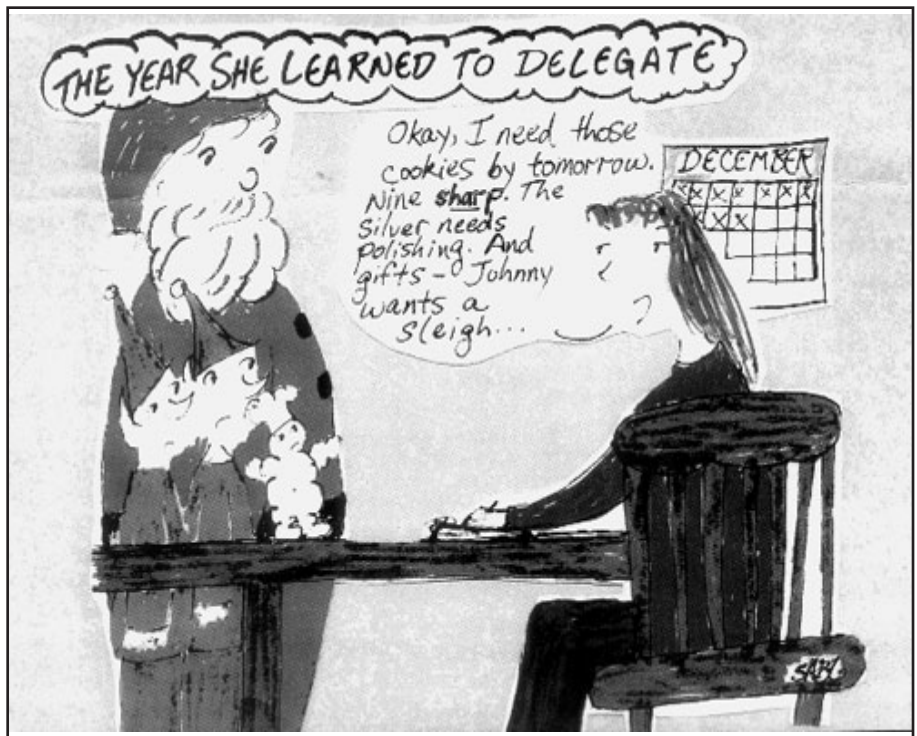 THE YEAR SHE LEARNED TO DELEGATE
Okay, I need those
cookies by tomorrow.
Nine sharp. The
silver needs
polishing. And
gifts - Johnny
wants a
sleigh...
DECEMBER
x x x x x x
x x x
SABY